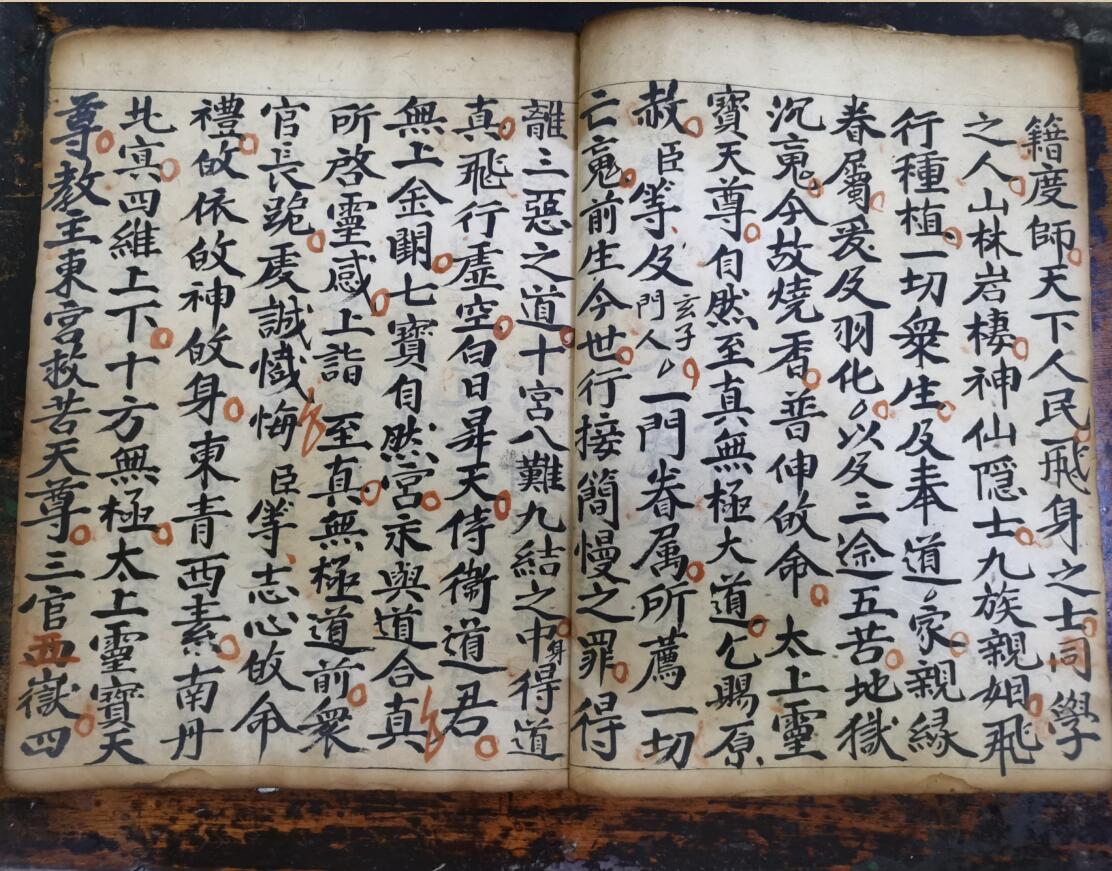 籍度師天下人民飛身之士同學
之人山林岩棲神仙隱士九族親姻飛
行種植一切衆生及奉道家親緣
眷屬爰及羽化以及三塗五苦地獄
沉䰟今故燒香普伸皈命太上靈
寶天尊自然至真無極大道乞賜原
赦臣等及門人玄子一門眷属所薦一切
亡䰟前生今世行接簡慢之罪得
離三惡之道十宮八難九結之中身得道
真飛行虛空白日昇天侍衞道君
無上金闕七寶自然宮永與道合真
所啓靈感上詣至真無極道前衆
官長跪虔誠懺悔臣等志心皈命
禮皈依皈神皈身東青西素南丹
北㝠四維上下十方無極太上靈寶天
尊教主東宮救苦天尊三官西嶽四